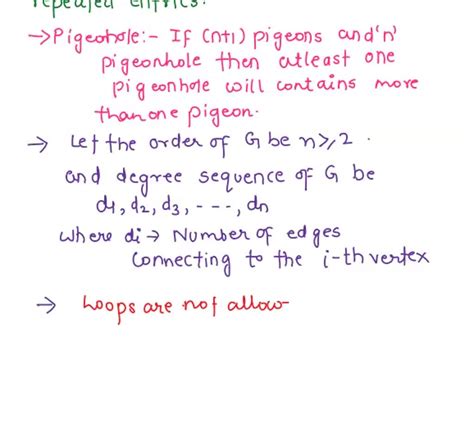 repeated entries.
→ Pigeohole:- If (n+1) pigeons and 'n'
pigeonhole then atleast one
pigeonhole will contains more
than one pigeon.
→ Let the order of G be n≥2.
and degree sequence of G be
d1, d2, d3, ----, dn
where di → Number of edges
connecting to the i-th vertex
→ Loops are not allow